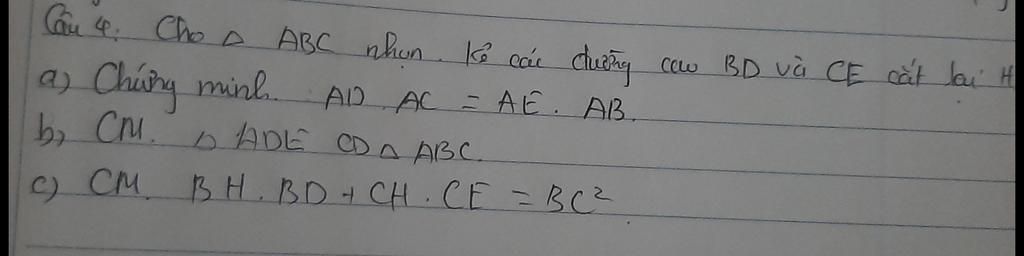 Câu 4. Cho △ ABC nhọn. Kẻ các đường cao BD và CE cắt tại H
a) Chứng minh. AD. AC = AE. AB.
b, CM. △ ADE ∽ △ ABC.
c) CM. BH. BD + CH. CE = BC²